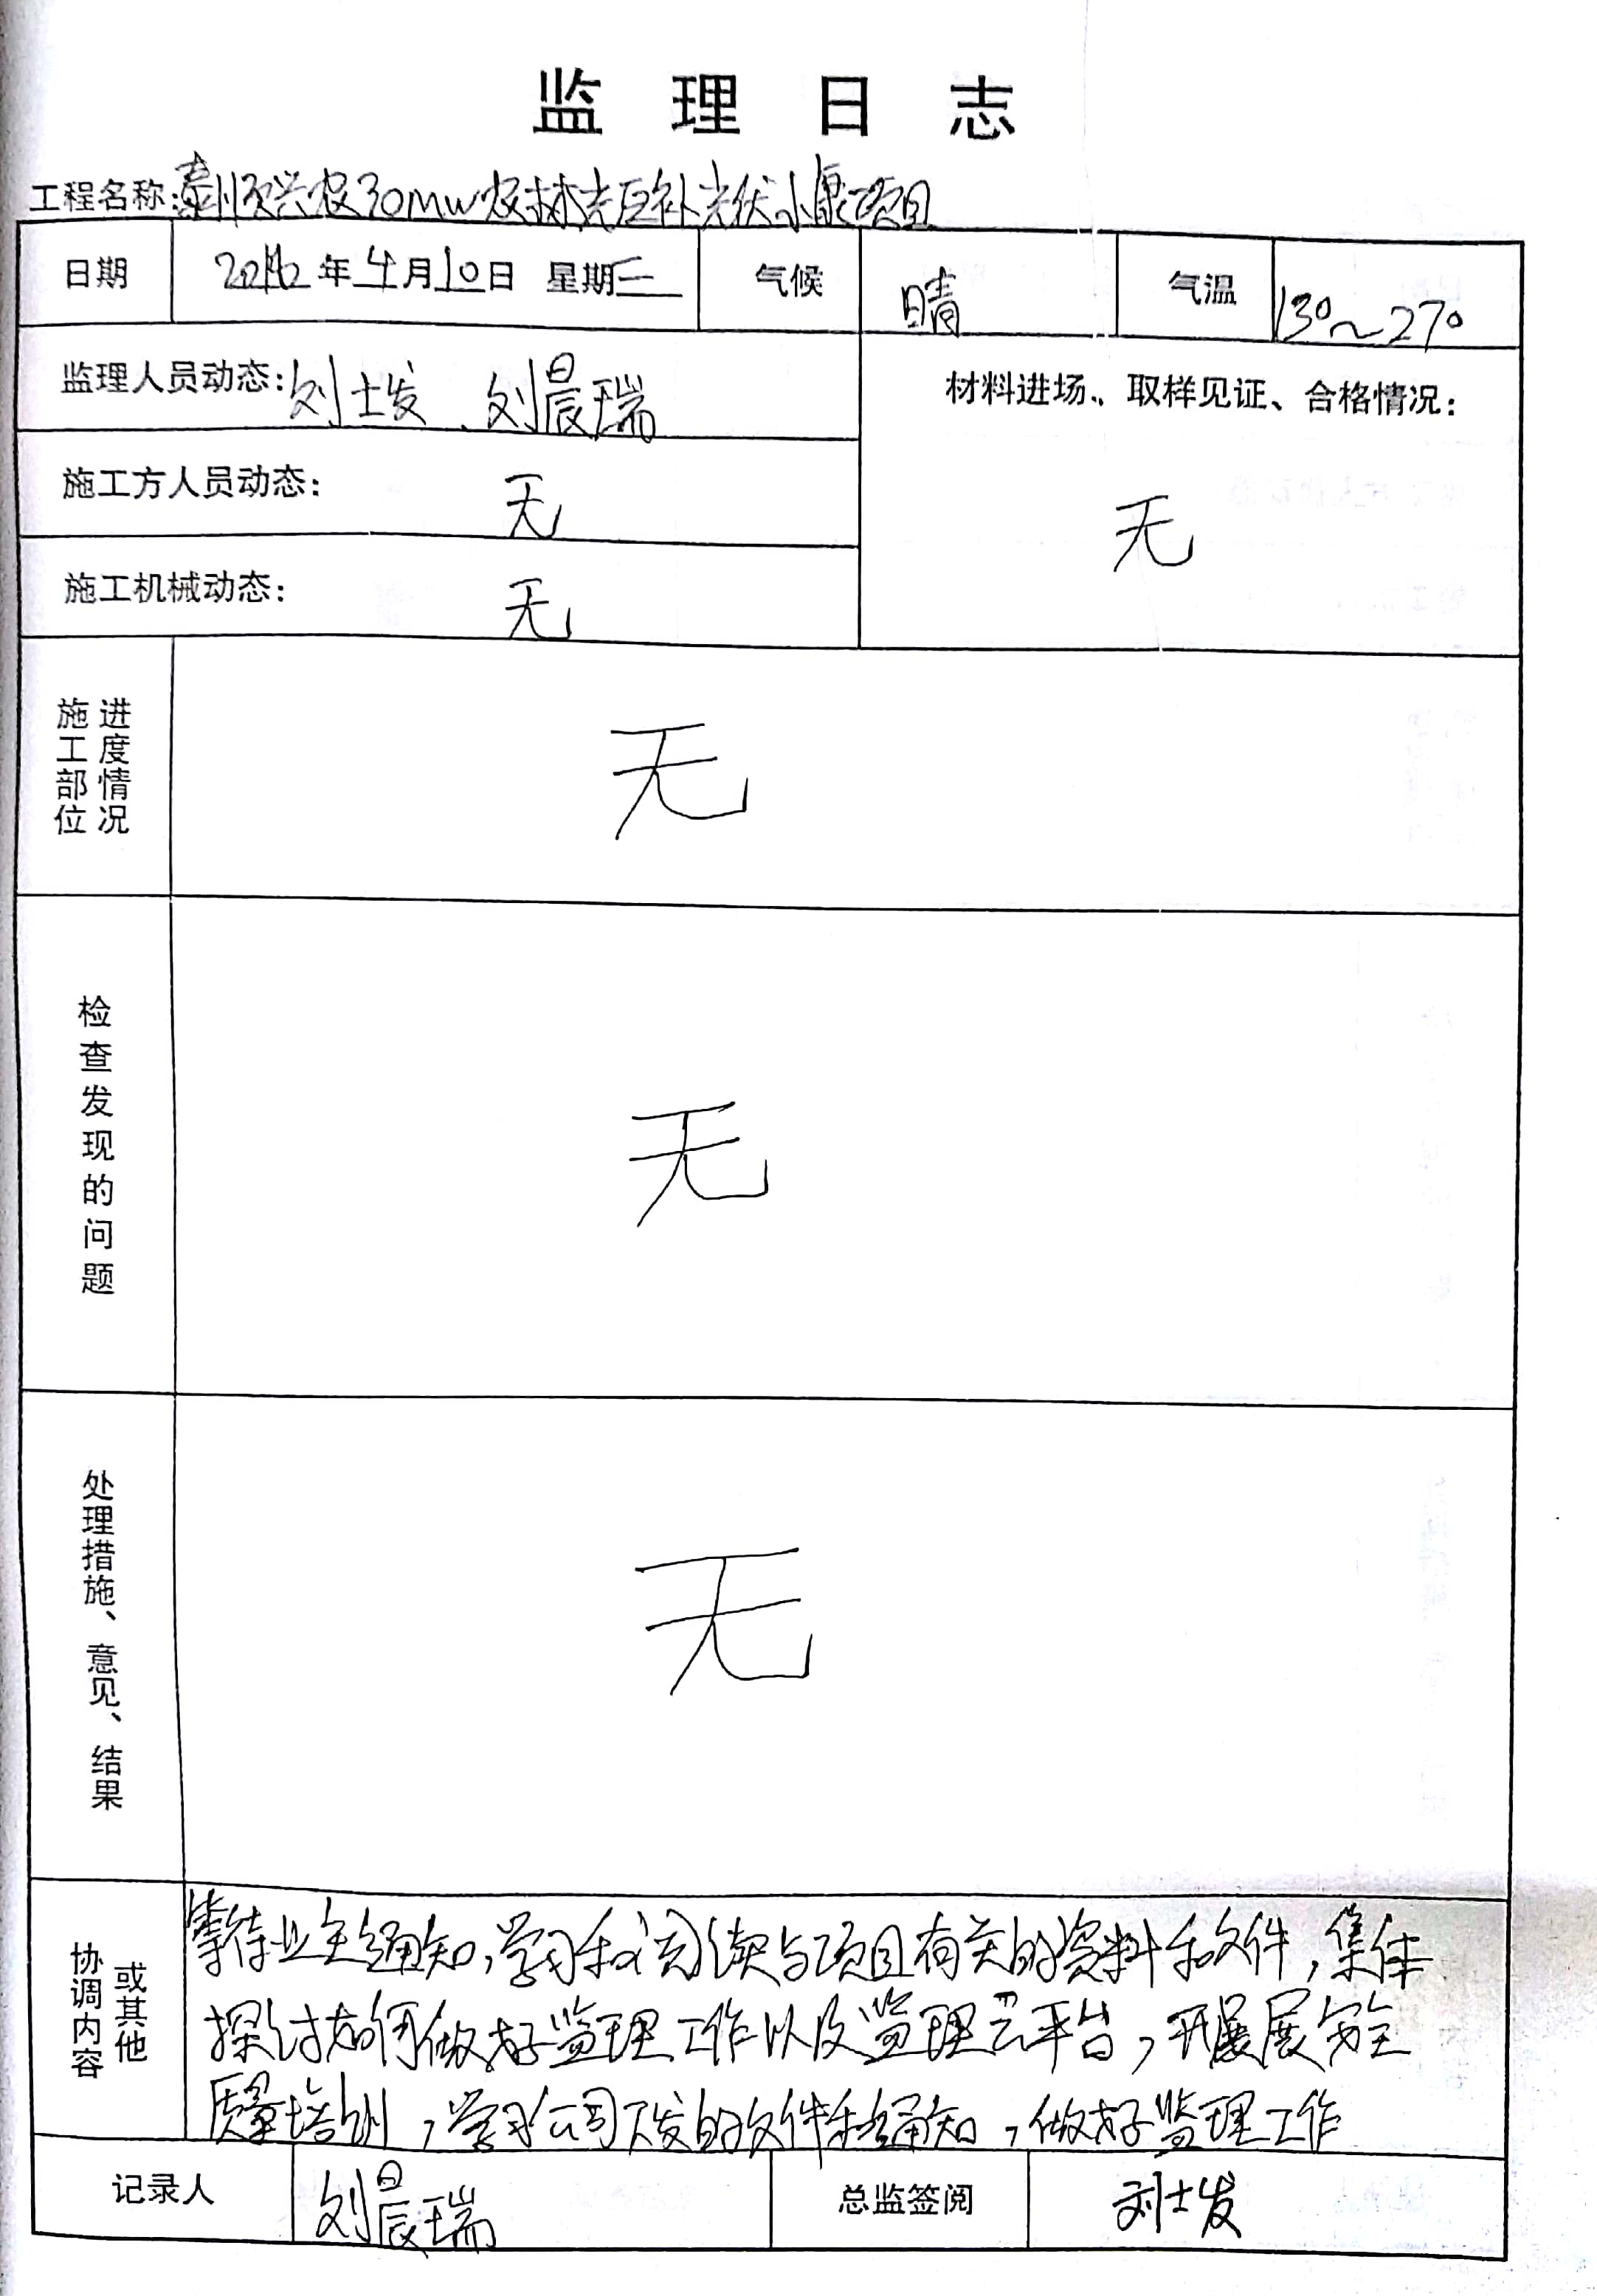 监理日志
工程名称:泰顺兴农30MW农林光互补光伏小康项目
日期 年4月10日 星期三 气候 晴 气温 13°~27°
监理人员动态:刘士发、刘晨瑞
材料进场、取样见证、合格情况:
无
施工方人员动态: 无
施工机械动态: 无
施工部位
进度情况
无
检查发现的问题
无
处理措施、意见、结果
无
协调内容
或其他
等待业主通知,学习和阅读与项目有关的资料和文件,集体
探讨如何做好监理工作以及监理云平台,开展安全
质量培训,学习公司下发的文件和通知,做好监理工作
记录人 刘晨瑞 总监签阅 刘士发